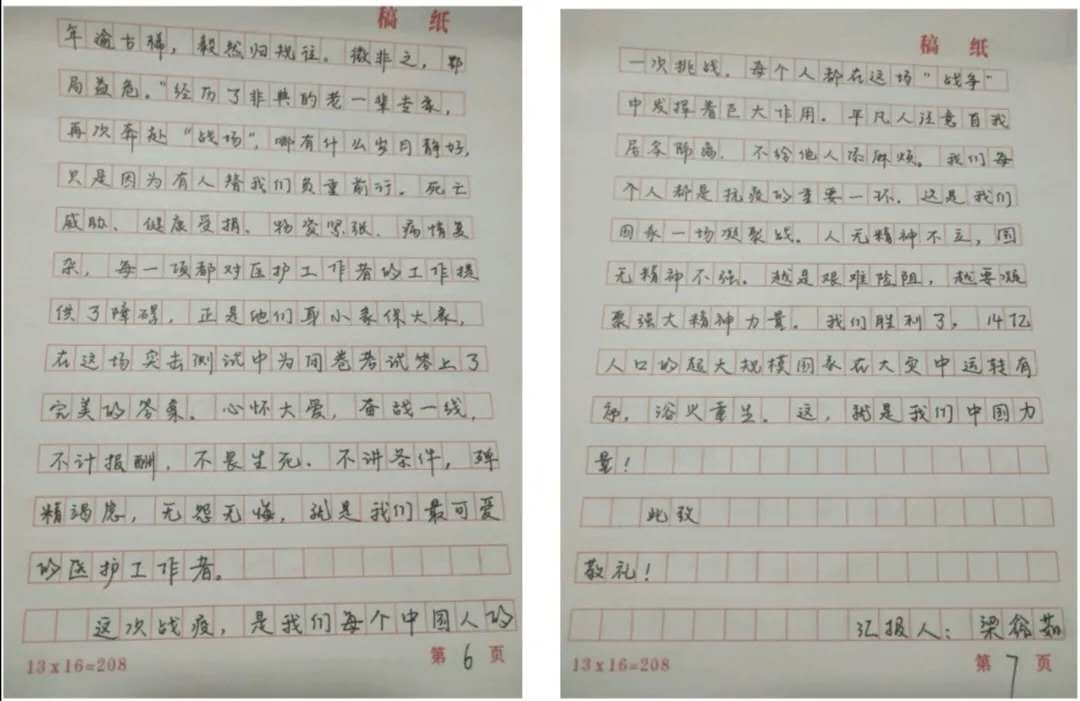 稿 纸
年逾古稀，毅然归规往。微非之，鄂
局益危。"经历了非典的老一辈专家，
再次奔赴"战场"，哪有什么岁月静好，
只是因为有人替我们负重前行。死亡
威胁、健康受损、物资紧张、病情复
杂，每一项都对医护工作者的工作提
供了障碍，正是他们舍小家保大家，
在这场突击测试中为闭卷考试答上了
完美的答案。心怀大爱，奋战一线，
不计报酬，不畏生死，不讲条件，殚
精竭虑，无怨无悔，就是我们最可爱
的医护工作者。
这次战疫，是我们每个中国人的
13x16=208 第 6 页
稿 纸
一次挑战，每个人都在这场"战争"
中发挥着巨大作用。平凡人注意自我
居家隔离，不给他人添麻烦。我们每
个人都是抗疫的重要一环。这是我们
国家一场凝聚战。人无精神不立，国
无精神不强。越是艰难险阻，越要凝
聚强大精神力量。我们胜利了，14亿
人口的超大规模国家在大灾中运转有
序，浴火重生。这，就是我们中国力
量！
此致
敬礼！
汇报人：梁 茹
13x16=208 第 7 页